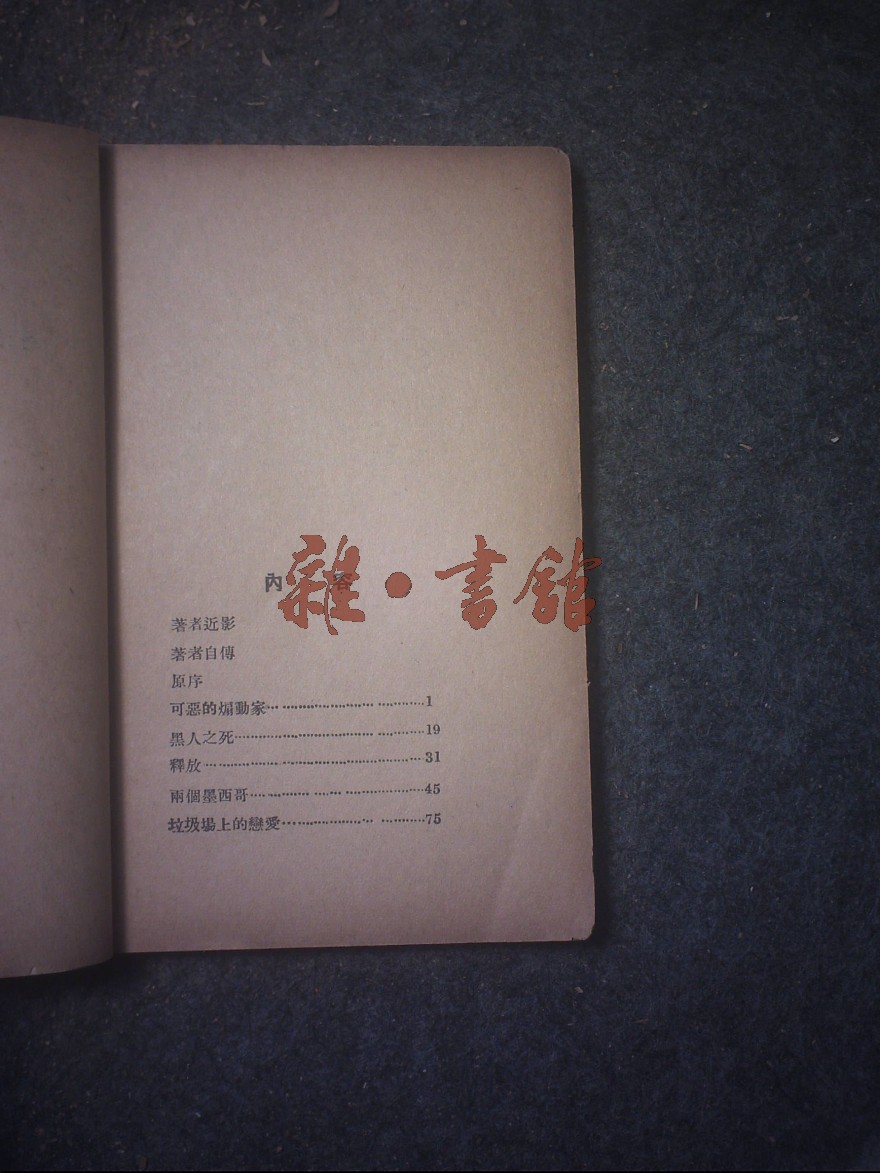 內容
雜·書館
著者近影
著者自傳
原序
可惡的煽動家……………………1
黑人之死……………………19
釋放……………………31
兩個墨西哥……………………45
垃圾場上的戀愛……………………75